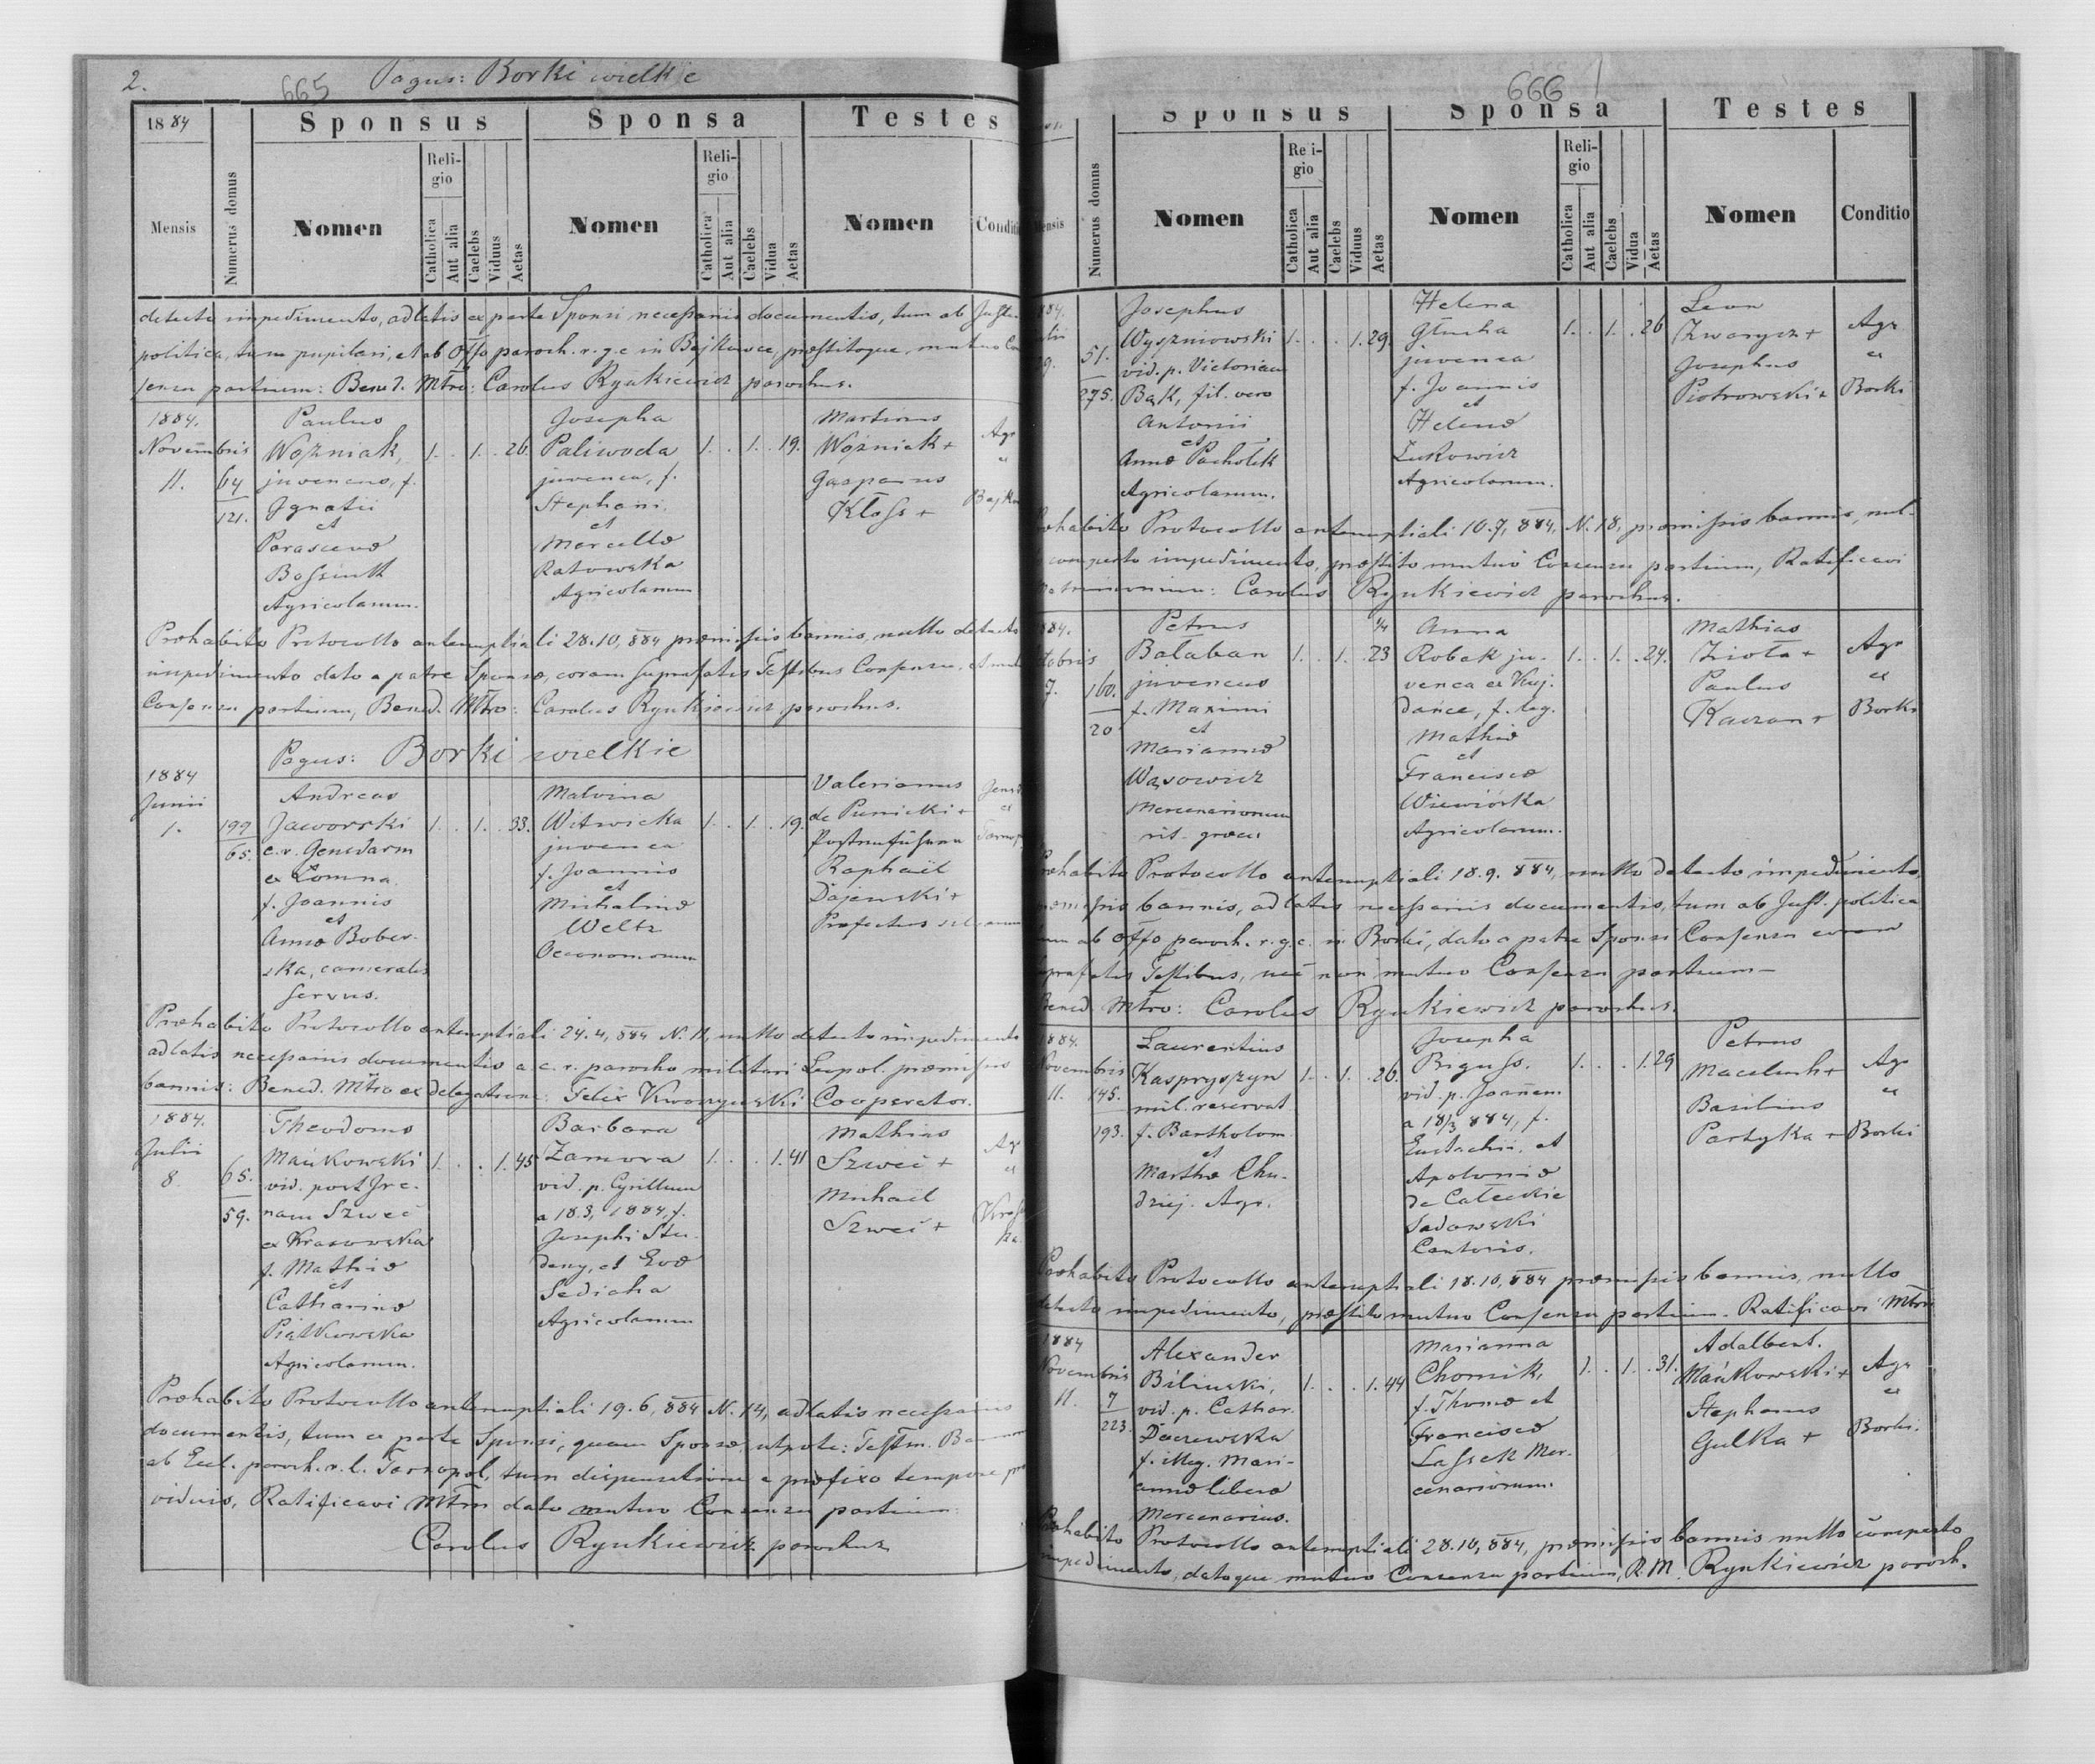 2. 665 Pagus: Borki wielkie
1884 Sponsus Sponsa Testes
Mensis Numerus domus Nomen Religio Catholica Aut alia Caelebs Viduus Aetas Nomen Religio Catholica Aut alia Caelebs Vidua Aetas Nomen Conditi
detecto impedimento, adlatis ex parte Sponsi necessariis documentis, tum ab
politica, tum pupilari, et ab Offo paroch. r.g.c. in Bajkowce, præstitoque mutuo
sensu partium: Bened. Mtro: Carolus Rynkiewicz parochus.
1884.
Novembris
11.
64
121.
Paulus
Woźniak,
juvencus, f.
Ignatii
et
Parascevæ
Agricolarum.
1. . 1. . 26.
Josepha
Paliwoda
juvenca, f.
Stephani
et
Marcellæ
Ratowska
Agricolarum
1. . 1. . 19.
Martinus
Woźniak +
Gasparus
Kloss +
Agr
Præhabito Protocollo antenuptiali 28.10, 884 præmissis bannis, nullo detecto
impedimento dato a patre Sponsæ, coram suprafatis Testibus Consensu, et
Consensu partium, Bened. Mtro: Carolus Rynkiewicz parochus.
Pagus: Borki wielkie
1884
Junii
1.
199
65.
Andreas
Jaworski
c.r. Gensdarm
ex Łomna.
f. Joannis
et
Annæ Bober-
ska, cameralis
servus.
1. . 1. . 33.
Malvina
Witwicka
juvenca
f. Joannis
et
Michalinæ
Weltz
Oeconomorum
1. . 1. . 19.
Valerianus
de Punicki +
Postenführer
Raphaël
Dajewski +
Præfectus
Præhabito Protocollo antenuptiali 24.4, 884 N. 11, nullo detecto impedimento
adlatis necessariis documentis a c. r. parocho militari Leopol. præmissis
bannis: Bened. Mtro ex delegatione: Felix Cooperator.
1884.
Julii
8.
65.
59.
Theodorus
Mańkowski
vid. post Ire-
nam Szweć
ex Krasowska
f. Mathiæ
et
Catharinæ
Piątkowska
Agricolarum.
1. . . 1. 45
Barbara
Zamora
vid. p. Cyrillum
a 18.3, 1884, f.
Josephi Stu-
deny, et Evæ
Sedicha
Agricolarum
1. . . 1. 41
Mathias
Szweć +
Michaël
Szweć +
Agr
Præhabito Protocollo antenuptiali 19.6, 884 N. 14, adlatis necessariis
documentis, tum ex parte Sponsi, quam Sponsæ, utpote: Testm. Bannorum
ab Eccl. paroch. r. l. Tarnopol, tum dispensatione a præfixo tempore pro
viduis, Ratificavi Mtm dato mutuo Consensu partium:
Carolus Rynkiewicz parochus
666
Sponsus Sponsa Testes
Mensis Numerus domus Nomen Religio Catholica Aut alia Caelebs Viduus Aetas Nomen Religio Catholica Aut alia Caelebs Vidua Aetas Nomen Conditio
51.
275.
Josephus
Wyszniowski
vid. p. Victoriam
Bąk, fil. vero
Antonii
et
Annæ Pachołek
Agricolarum.
1. . . 1. 29.
Helena
Głucha
juvenca
f. Joannis
et
Helenæ
Łukowicz
Agricolarum.
1. . 1. . 26
Leon
Zwarycz +
Josephus
Piotrowski +
Agr
ex
Borki
Præhabito Protocollo antenuptiali 10.7, 884, N. 18, præmissis bannis, nul-
comperto impedimento, præstito mutuo Consensu partium, Ratificavi
Matrimonium: Carolus Rynkiewicz parochus.
884.
7.
160.
20
Petrus
Bałaban
juvencus
f. Maximi
et
Mariannæ
Wąsowicz
Mercenariorum
rit. græci
1. . 1. . 23
Anna
Robak ju-
venca ex Kuj-
dance, f. leg.
Mathiæ
et
Franciscæ
Wiewiórka
Agricolarum.
1. . 1. . 24.
Mathias
Zioła +
Paulus
Kaczan +
Agr
ex
Borki
Præhabito Protocollo antenuptiali 18.9. 884, nullo detecto impedimento,
præmissis bannis, adlatis necessariis documentis, tum ab Just. politica
tum ab Offo paroch. r.g.c. in Borki, dato a patre Sponsi Consensu coram
suprafatis Testibus, nec non mutuo Consensu partium —
Bened Mtro: Carolus Rynkiewicz parochus.
1884.
Novembris
11.
145.
193.
Laurentius
Kaspryszyn
mil. reservat
f. Bartholom.
et
Marthæ Chu-
dziej. Agr.
1. . 1. . 26.
Josepha
Biguss.
vid. p. Joannem
a 18/3 884, f.
Eustachii, et
Apoloniæ
Sadowski
Cantoris.
1. . . 1. 29
Petrus
Maceluch +
Basilius
Partyka +
Agr
ex
Borki
Præhabito Protocollo antenuptiali 18.10, 884 præmissis bannis, nullo
detecto impedimento, præstito mutuo Consensu partium. Ratificavi Mtm
1884
Novembris
11.
7
223.
Alexander
Biliński,
vid. p. Cathar.
Daczewska
f. illeg. Mari-
annæ liberæ
Mercenarius.
1. . . 1. 44
Marianna
Chomik,
f. Thomæ et
Franciscæ
Lassek Mer-
cenariorum.
1. . 1. . 31.
Adalbert.
Mańkowski +
Stephanus
Gulka +
Agr
ex
Borki.
Præhabito Protocollo antenuptiali 28.10, 884, præmissis bannis nullo comperto
impedimento, datoque mutuo Consensu partium, R. M. Rynkiewicz paroch.